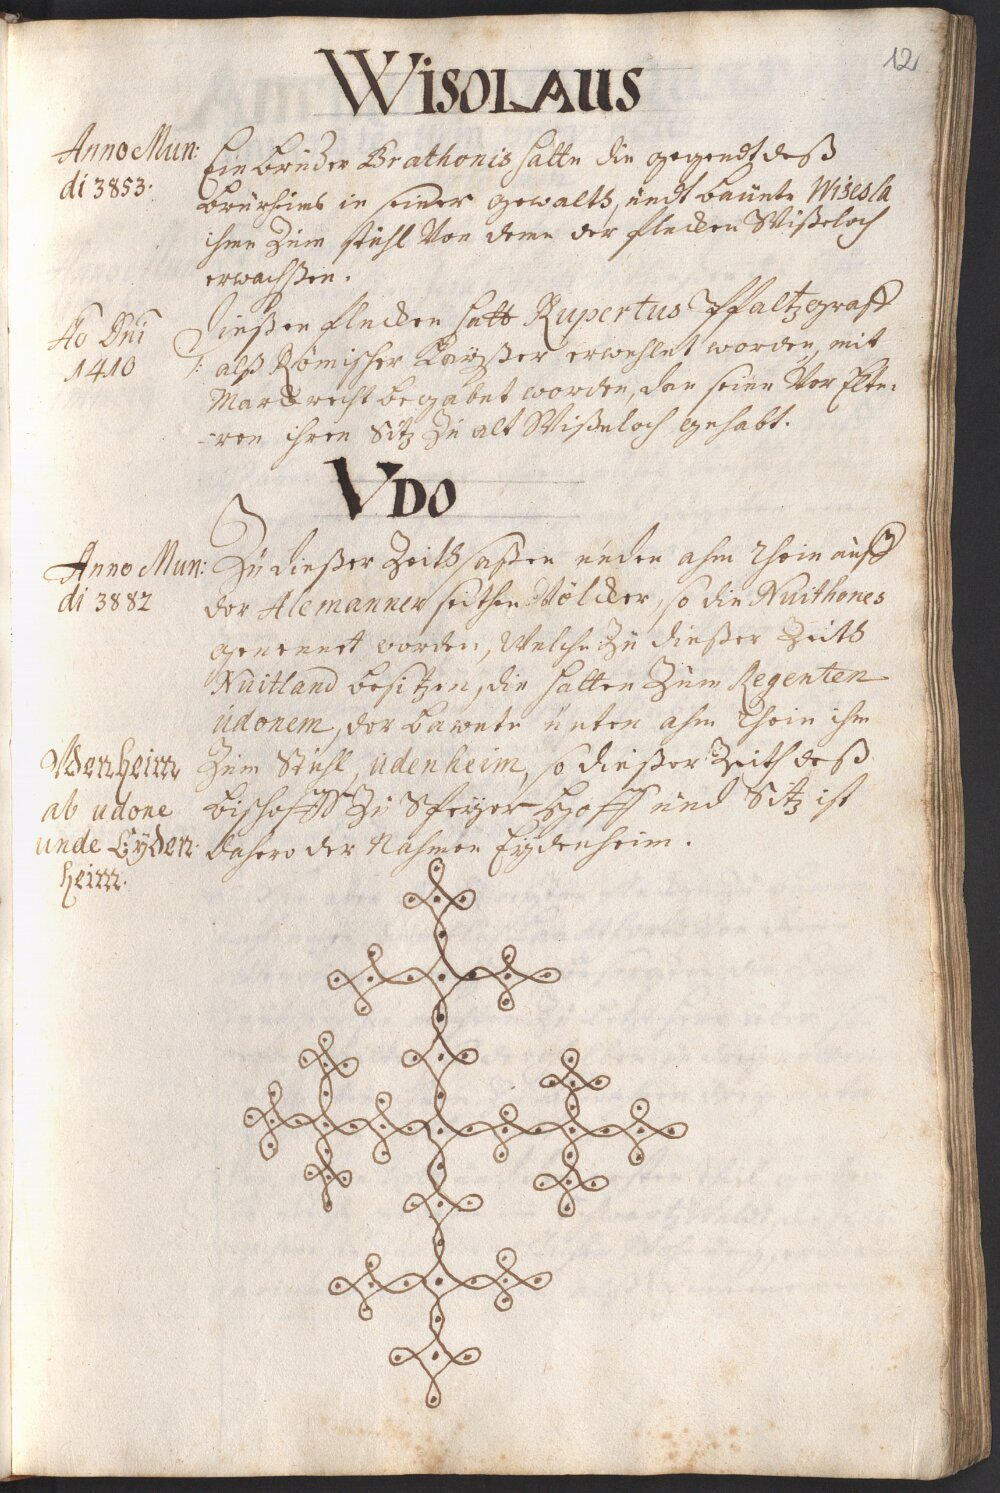 12
WISOLAUS
Anno Mun:
di 3853.
Ein bruder Brathonis hatte die gegendt deß
Brurheins in seiner gewalth, undt bauete Wisesla
ihme zum stuhl Von deme der flecken Wißeloch
erwachßen.
Ao Dni
1410
Dießen flecken hatt Rupertus Pfaltzgraff
alß Römischer Kayßer erwehlet worden, mit
Marckrecht begabet worden, dan seine Vor Elte-
-ren ihren Sitz zu alt Wißeloch gehabt.
VDO
Anno Mun:
di 3882
Zu dießer Zeith saßen unden ahm Rhein auff
der Alemanner seithen Völcker, so die Nuithones
genennet worden, Welche zu dießer Zeith
Nuitland besitzen, die hatten zum Regenten
udonem, der bawete unten ahm Rhein ihm
Vdenheim
ab udone
unde Eyden-
heim.
zum Stuhl, udenheim, so dießer Zeith deß
bischoffs zu Speyer Hoff und Sitz ist
dahero der Nahmen Eydenheim.